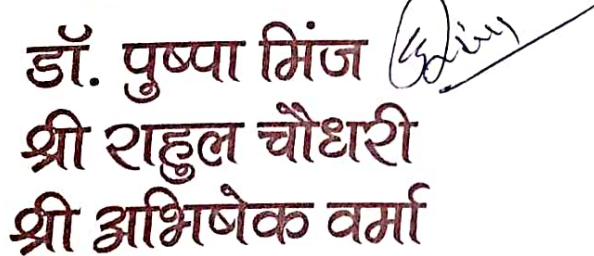 डॉ. पुष्पा मिंज
श्री राहुल चौधरी
श्री अभिषेक वर्मा